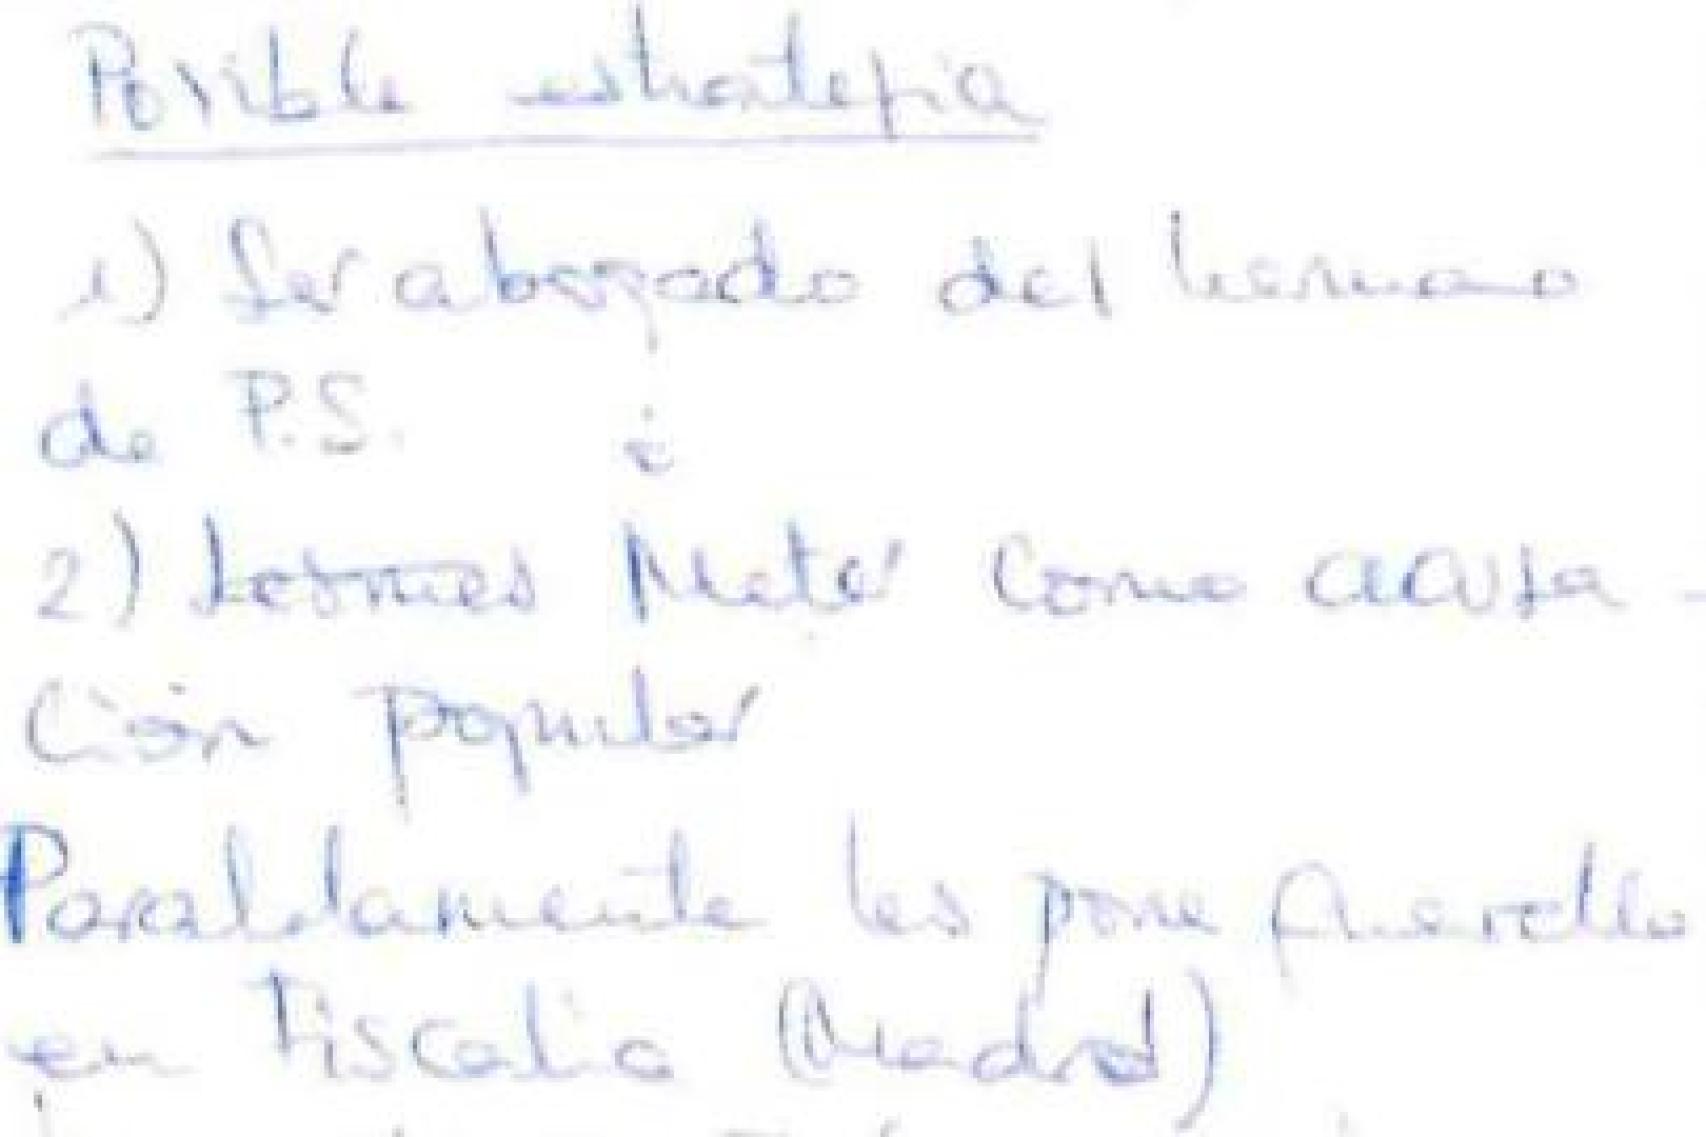 Posible estrategia
1) Ser abogado del hermano
de P.S. i
2) Lesmes Meter como acusa-
ción popular
Paraldamente les pone querella
en Fiscalía (Madrid)